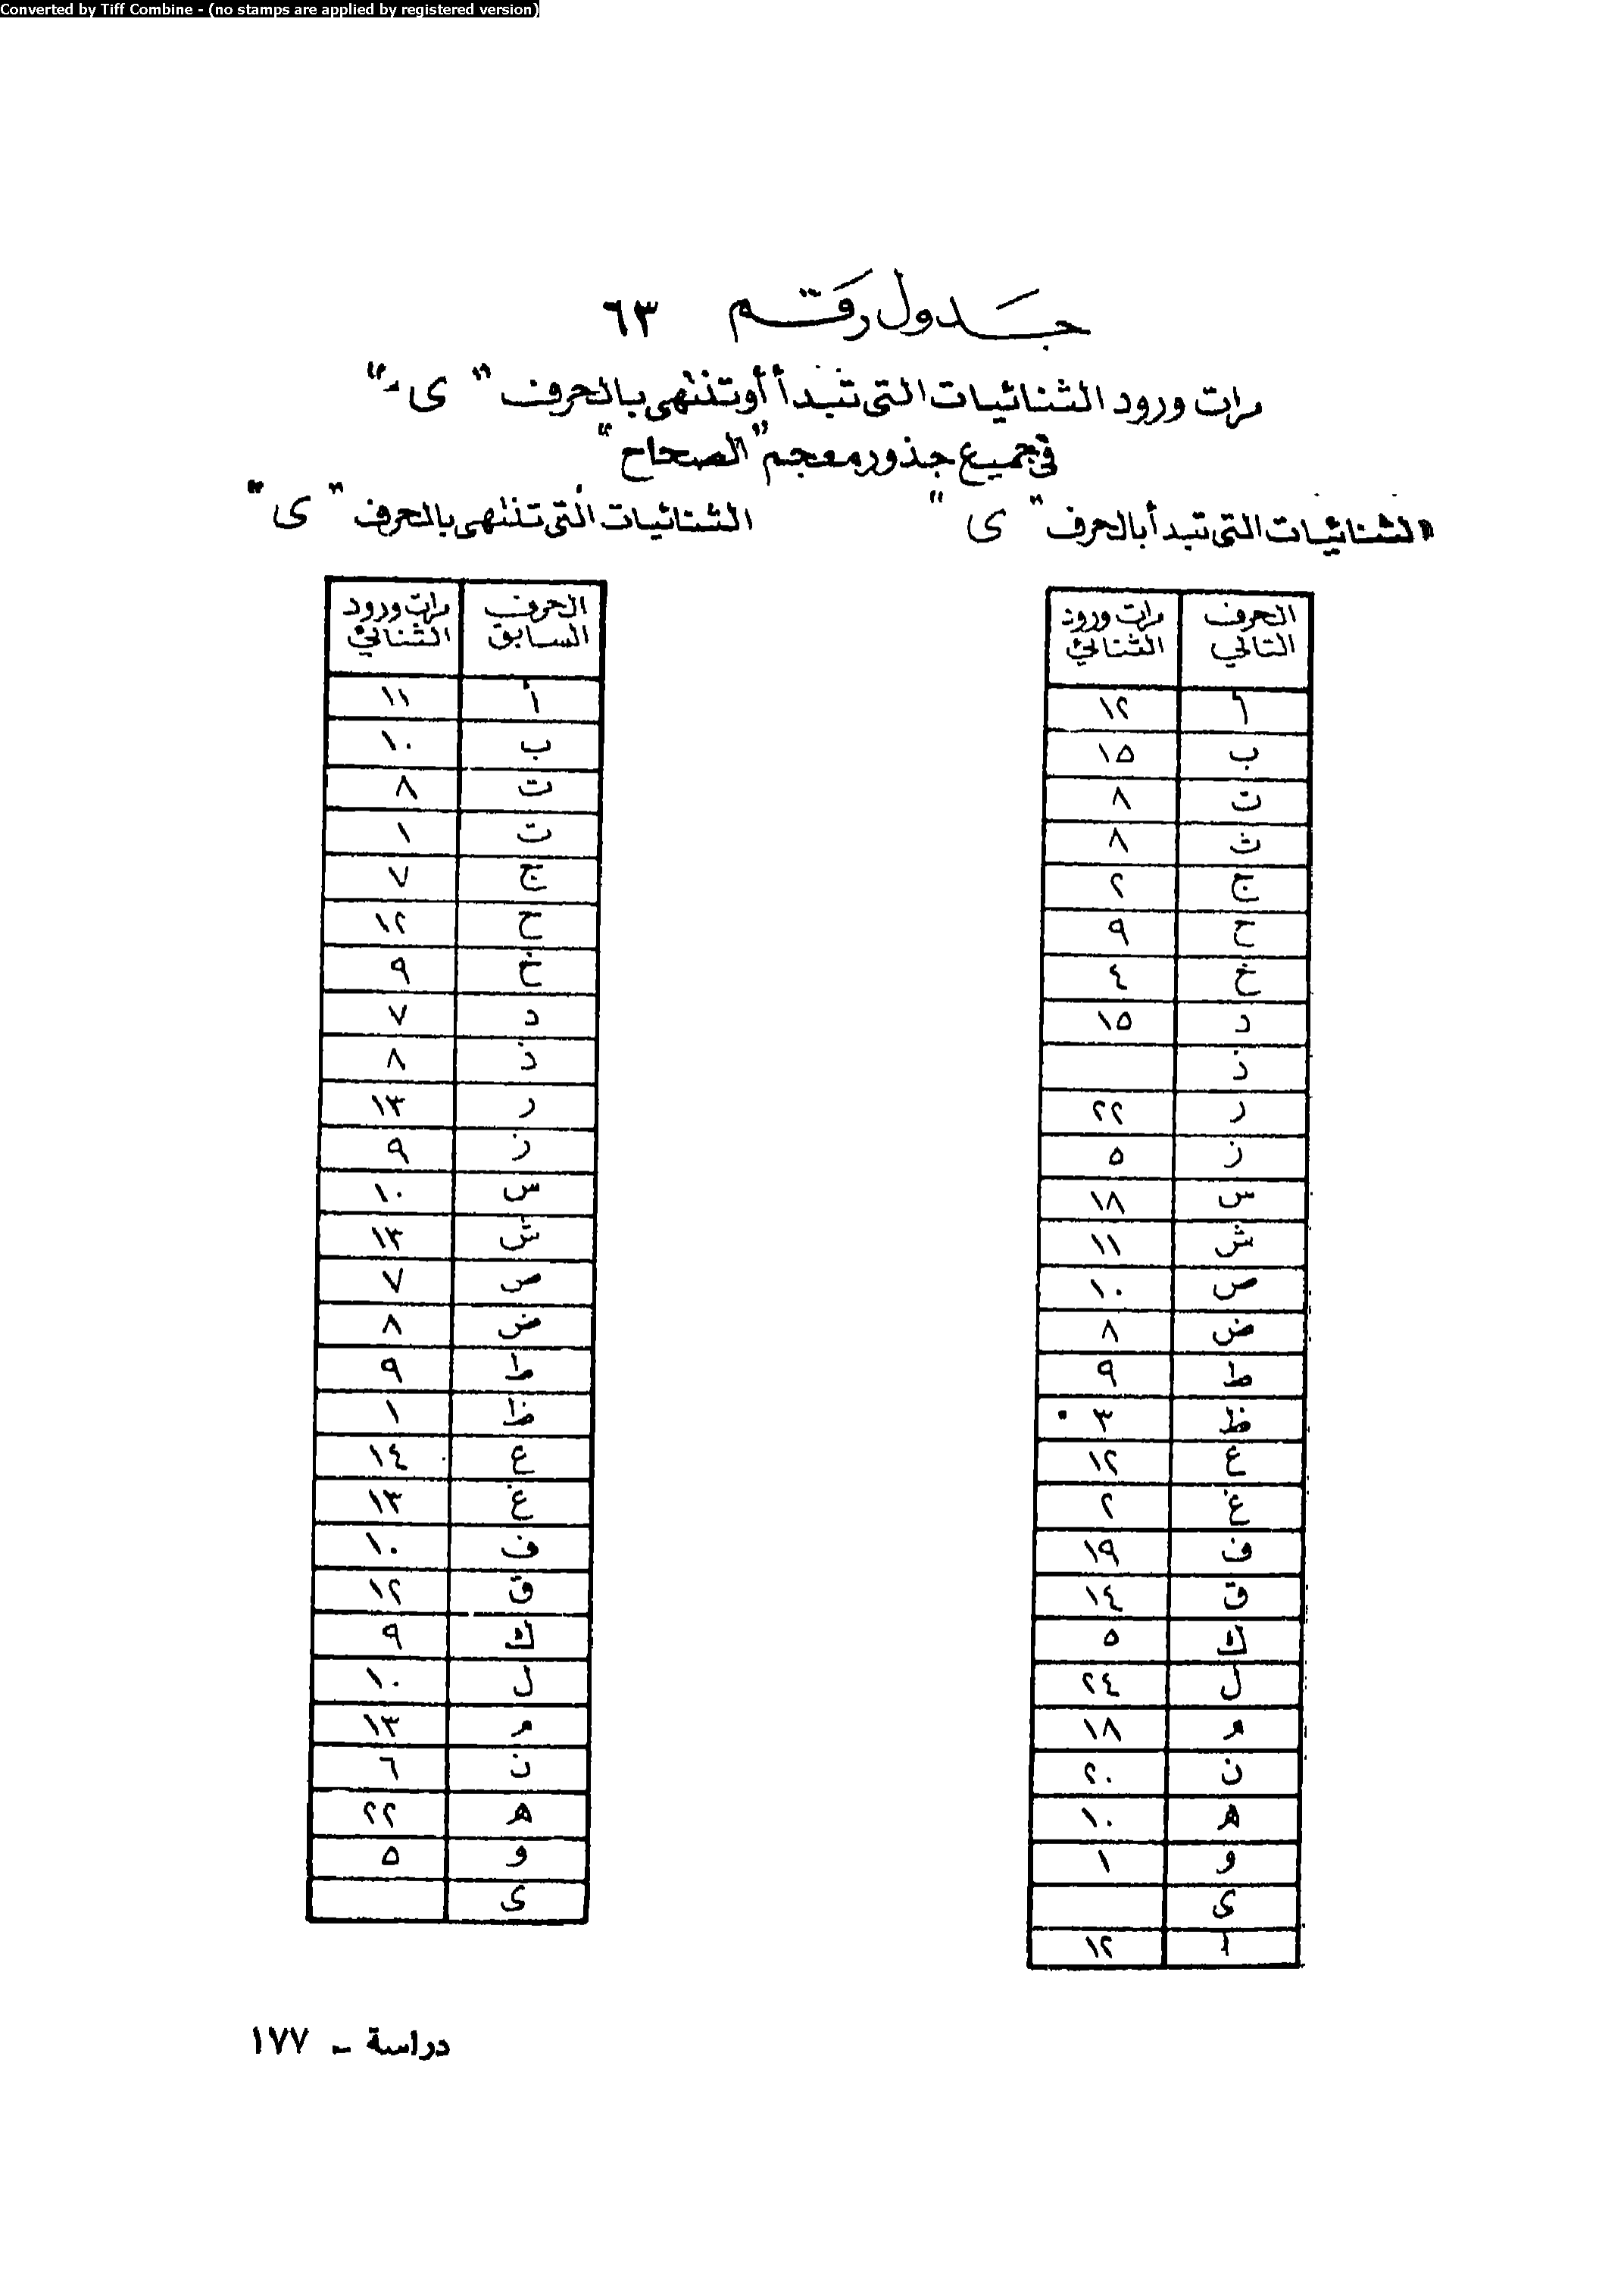 Converted by Tiff Combine - (no stamps are applied by registered version)
جدول رقم ٦٣
مرات ورود الثنائيات التى تبدأ أو تنتهى بالحرف " ى "
فى جميع جذور معجم "الصحاح"
الثنائيات التى تبدأ بالحرف " ى "
الحرف التالي مرات ورود الثنائي
أ ١٢
ب ١٥
ت ٨
ث ٨
ج ٢
ح ٩
خ ٤
د ١٥
ذ
ر ٢٢
ز ٥
س ١٨
ش ١١
ص ١٠
ض ٨
ط ٩
ظ ٣
ع ١٢
غ ٢
ف ١٩
ق ١٤
ك ٥
ل ٢٤
م ١٨
ن ٢٠
ه ١٠
و ١
ى
أ ١٢
الثنائيات التى تنتهى بالحرف " ى "
الحرف السابق مرات ورود الثنائي
أ ١١
ب ١٠
ت ٨
ث ١
ج ٧
ح ١٢
خ ٩
د ٧
ذ ٨
ر ١٣
ز ٩
س ١٠
ش ١٣
ص ٧
ض ٨
ط ٩
ظ ١
ع ١٤
غ ١٣
ف ١٠
ق ١٢
ك ٩
ل ١٠
م ١٣
ن ٦
ه ٢٢
و ٥
ى
دراسة - ١٧٧